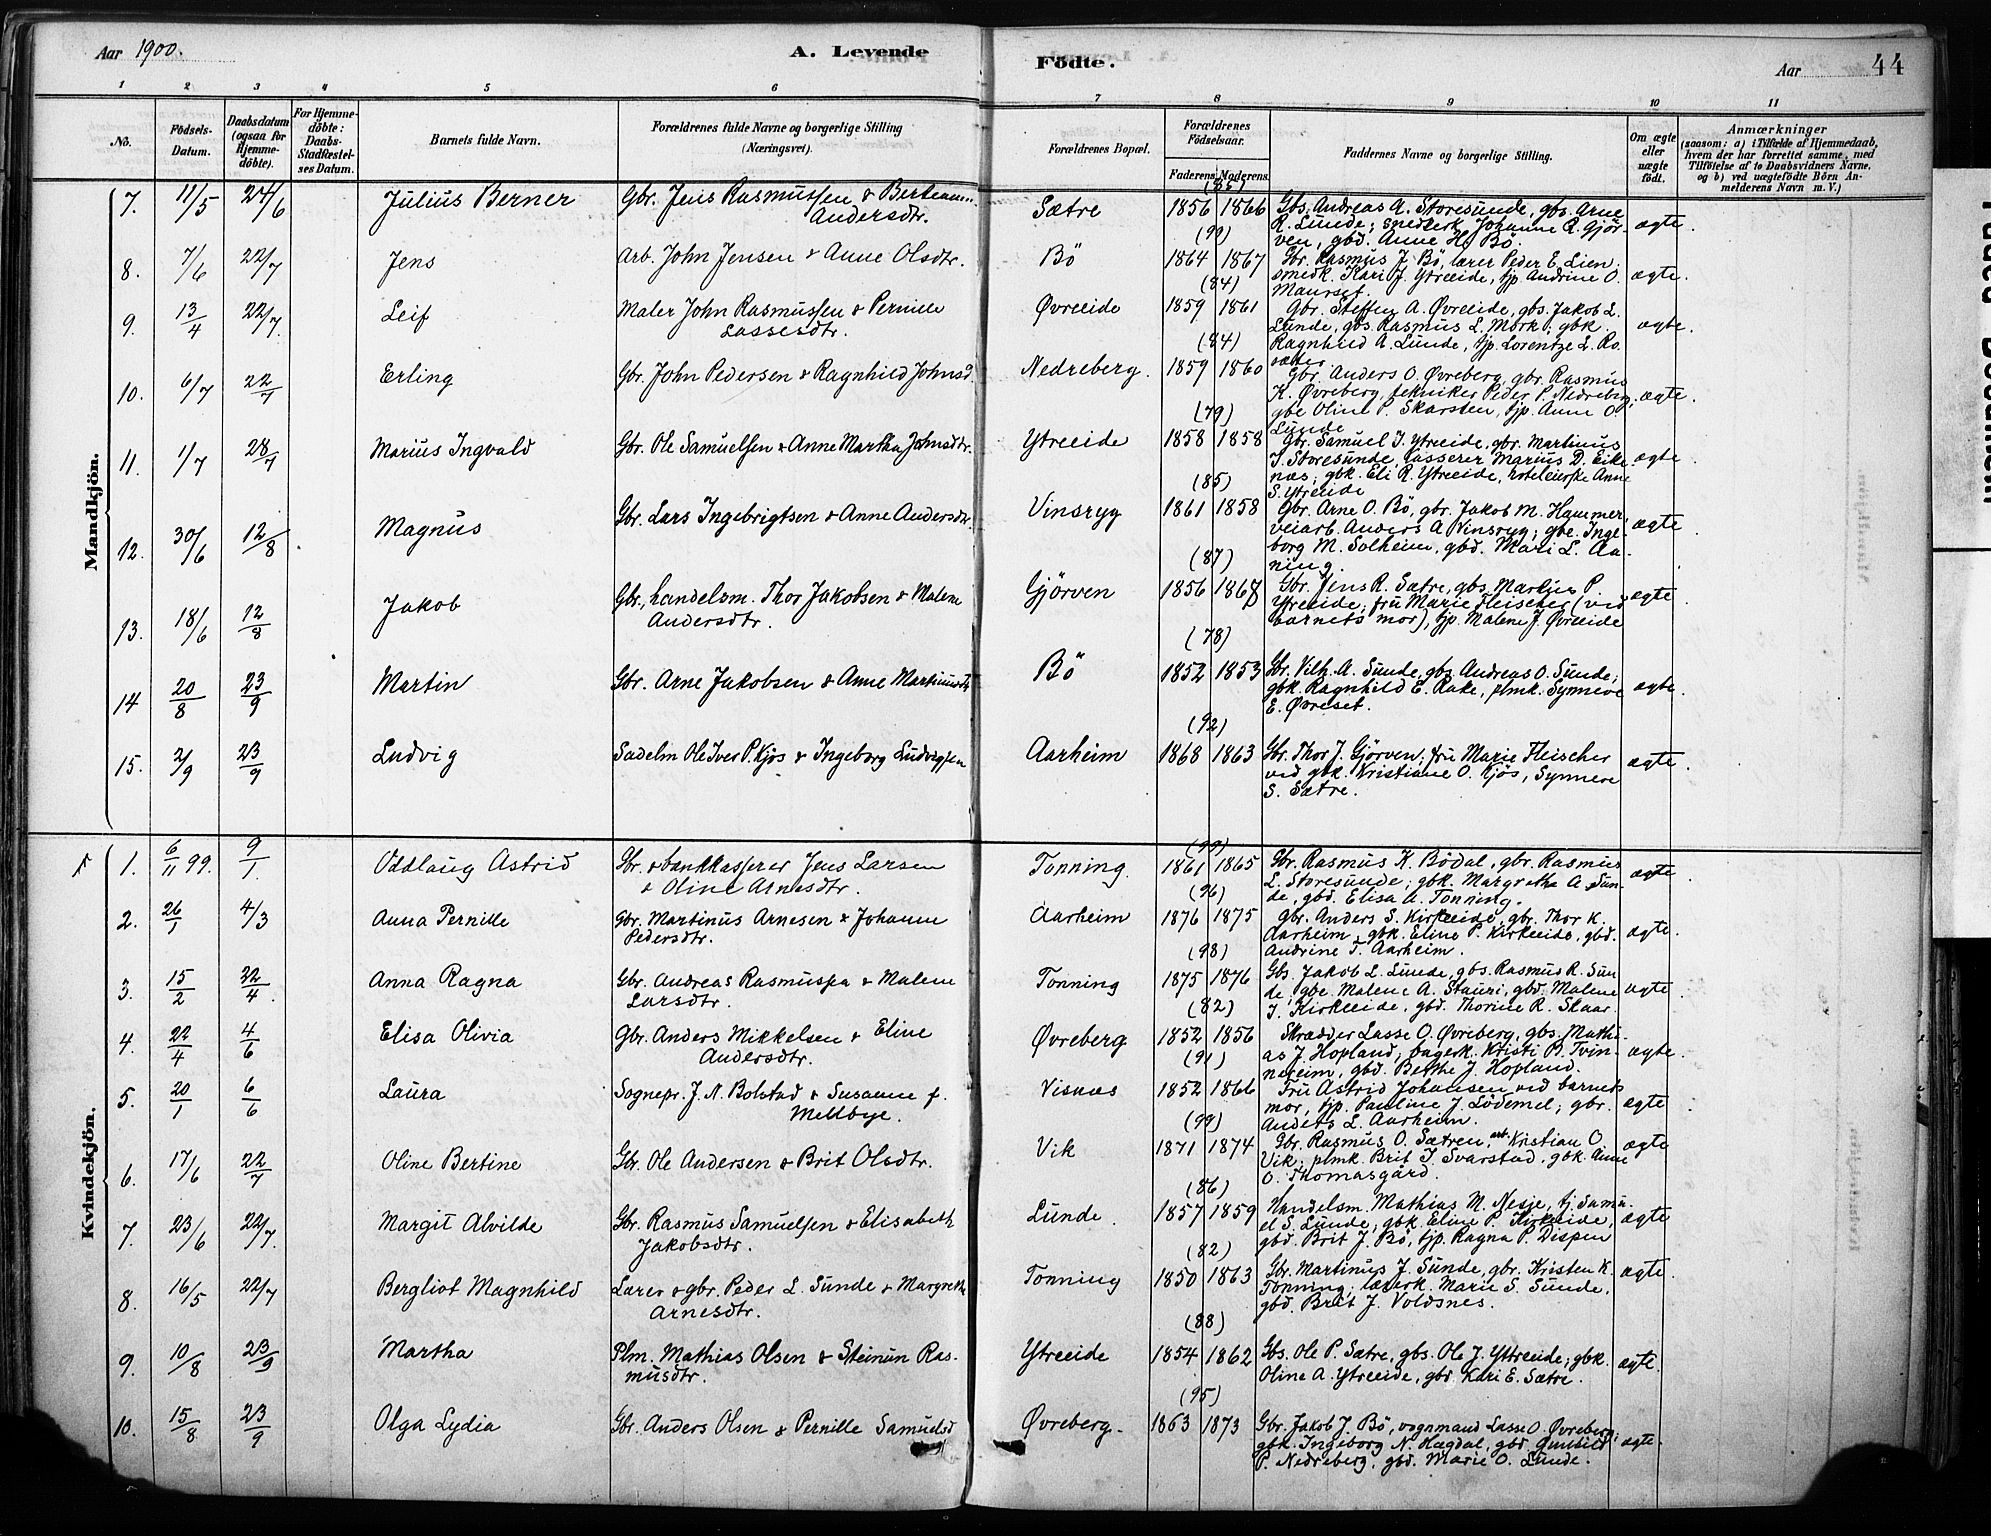 Aar 1900.
A. Levende
Födte.
Aar
44
1 2 3 4 5 6 7 8 9 10 11
No.
Födsels-Datum.
Daabsdatum (ogsaa for Hjemme-döbte).
For Hjemme-döbte: Daabs-Stadfæstel-ses Datum.
Barnets fulde Navn.
Forældrenes fulde Navne og borgerlige Stilling (Næringsvei).
Forældrenes Bopæl.
Forældrenes Födselsaar.
Faderens. Moderens.
Faddernes Navne og borgerlige Stilling.
Om ægte eller uægte födt.
Anmærkninger
(saasom: a) i Tilfælde af Hjemmedaab, hvem der har forrettet samme, med Tilföielse af to Daabsvidners Navne, og b) ved uægtefödte Börn An-melderens Navn m. V.)
Mandkjön.
7. 11/5 24/6 Julius Berner Gbr. Jens Rasmussen & Andersdtr. Sætre (85) 1856 1866 Gbs. Andreas A. Storesunde, gbs. Arne
R. Lunde; Johanne R. Gjör-
ven, gbd. Anne H. Bö. ægte.
8. 7/6 22/7 Jens Arb. John Jensen & Anne Olsdtr. Bö (90) 1864 1867 Gbr. Rasmus J. Bö, lærer Peder E. Lien;
smedk. Kari J. Ytreeide, tjp. Andrine O.
Maurset. ægte.
9. 13/4 22/7. Leif Maler John Rasmussen & Pernille Lassesdtr. Øvreeide (84) 1859 1861 Gbr. Steffen A. Øvreeide, gbs. Jakob L.
Lunde, gbs. Rasmus L. Mörk; gbk.
Ragnhild A. Lunde, tjp. Lorentze L. Ro-
sæter ægte.
10. 6/7 22/7 Erling Gbr. John Pedersen & Ragnhild Johnsd. Nedreberg. (84) 1859 1860 Gbr. Anders O. Øvreberg, gbr. Rasmus
K. Øvreberg, tekniker Peder P. Nedreberg;
gbe Oline P. Skarsten, tjp. Anne O.
Lunde ægte.
11. 1/7 28/7 Marius Ingvald Gbr. Ole Samuelsen & Anne Martha Johnsdtr. Ytreeide (79) 1858 1858 Gbr. Samuel J. Ytreeide, gbr. Martinus
J. Storesunde, kasserer Marius D. Eike-
næs; gbk. Eli R. Ytreeide, hoteleierske Anne
S. Ytreeide ægte.
12. 30/6 12/8 Magnus Gbr. Lars Ingebrigtsen & Anne Andersdtr. Vinsryg (85) 1861 1858 Gbr. Arne O. Bö, gbr. Jakob M. Hammer,
veiarb. Anders A Vinsryg; gbe. Inge-
borg M. Solheim, gbd. Mari L. Aa-
ning. ægte
13. 18/6 12/8 Jakob Gbr., handelsm. Thor Jakobsen & Malene Andersdtr. Gjörven (87) 1856 1868 Gbr. Jens R. Sætre, gbs. Martin P.
Ytreeide; fru Marie Fleischer (ved
barnets mor), tjp. Malene J. Øvreeide ægte
14 20/8 23/9 Martin Gbr. Arne Jakobsen & Anne Martinusdtr. Bö (78) 1852 1853 Gbr. Vilh. A. Sunde, gbs. Andreas O. Sunde;
gbk. Ragnhild E. Rake, plmk. Synneve
E. Øvreset. ægte
15. 2/9 23/9 Ludvig Sadelm Ole Iver P. Kjös & Ingeborg Ludvigsen Aarheim (92) 1868 1863 Gbr. Thor J. Gjörven; fru Marie Fleischer
ved gbk. Kristiane O. Kjös, Synneve
S. Sætre. ægte.
Kvindekjön.
1. 6/11 99. 9/1. Oddlaug Astrid Gbr. & bankkasserer Jens Larsen & Oline Arnesdtr. Tonning. (99) 1861 1865 Gbr. Rasmus K. Bödal, gbr. Rasmus
L. Storesunde; gbk. Margretha A. Sun-
de, gbd. Elisa A. Tonning. ægte.
2. 26/1 4/3 Anna Pernille Gbr. Martinus Arnesen & Johanne Pedersdtr. Aarheim (96) 1876 1875 Gbr. Anders S. Kirkeeide, gbr. Thor K.
Aarheim, gbk. Eline P. Kirkeeide, gbd.
Andrine T. Aarheim. ægte.
3. 15/2 22/4. Anna Ragna Gbr. Andreas Rasmussen & Malene Larsdtr. Tonning (98) 1875 1876 Gbs. Jakob L. Lunde, gbs. Rasmus R. Sun-
de, gbe Malene A. Stauri, gbd. Malene
J. Kirkeeide, gbd. Thorine R. Skaar. ægte.
4. 22/4 4/6 Elisa Olivia Gbr. Anders Mikkelsen & Eline Andersdtr. Øvreberg (82) 1852 1856 Skrædder Lasse O. Øvreberg, gbs. Mathi-
as J. Hopland, bagerk. Kristi B. Tvin-
nereim, gbd. Berthe J. Hopland. ægte.
5. 20/1 6/6 Laura Sognepr. J. A. Bolstad & Susanne f. Meltbye. Visnæs (91) 1852 1866 Fru Astrid Johansen ved barnets
mor, tjp. Pauline J. Lödemel; gbr.
Anders L. Aarheim. ægte
6. 17/6 22/7 Oline Bertine Gbr. Ole Andersen & Brit Olsdtr. Vik (99) 1871 1874 Gbr. Rasmus O. Sætren, arb. Kristian O.
Vik; plmk. Brit J. Svarstad, gbk. Anne
O. Thomasgård. ægte
7. 23/6 22/7. Margit Alvilde Gbr. Rasmus Samuelsen & Elisabeth Jakobsdtr. Lunde. (86) 1857 1859 Handelsm. Mathias M. Nesje, tj. Samu-
el S. Lunde; gbk. Eline P. Kirkeeide,
gbd. Brit J. Bö, tjp. Ragna P. Dispen ægte
8. 16/5 22/7 Bergliot Magnhild Lærer & gbr. Peder L. Sunde & Margrethe Arnesdtr. Tonning (82) 1850 1863 Gbr. Martinus J. Sunde, gbr. Kristen K.
Tonning, lærerk. Marie S. Sunde,
gbd. Brit J. Voldsnes. ægte.
9. 10/8 23/9 Martha Plm. Mathias Olsen & Steinun Ras-musdtr. Ytreeide (88) 1854 1862 Gbs. Ole P. Sætre, gbs. Ole J. Yttreeide; gbk.
Oline A. Ytreeide, gbd. Kari E. Sætre. ægte.
10. 15/8 23/9 Olga Lydia Gbr. Anders Olsen & Pernille Samuelsd Øvreberg. (95) 1863 1873 Gbr. Jakob J. Bö, vognmand Lasse O. Øvreberg;
gbk. Ingeborg N. Hægdal, gbd. Gunhild
P. Nedreberg, gbd. Marie O. Lunde. ægte.